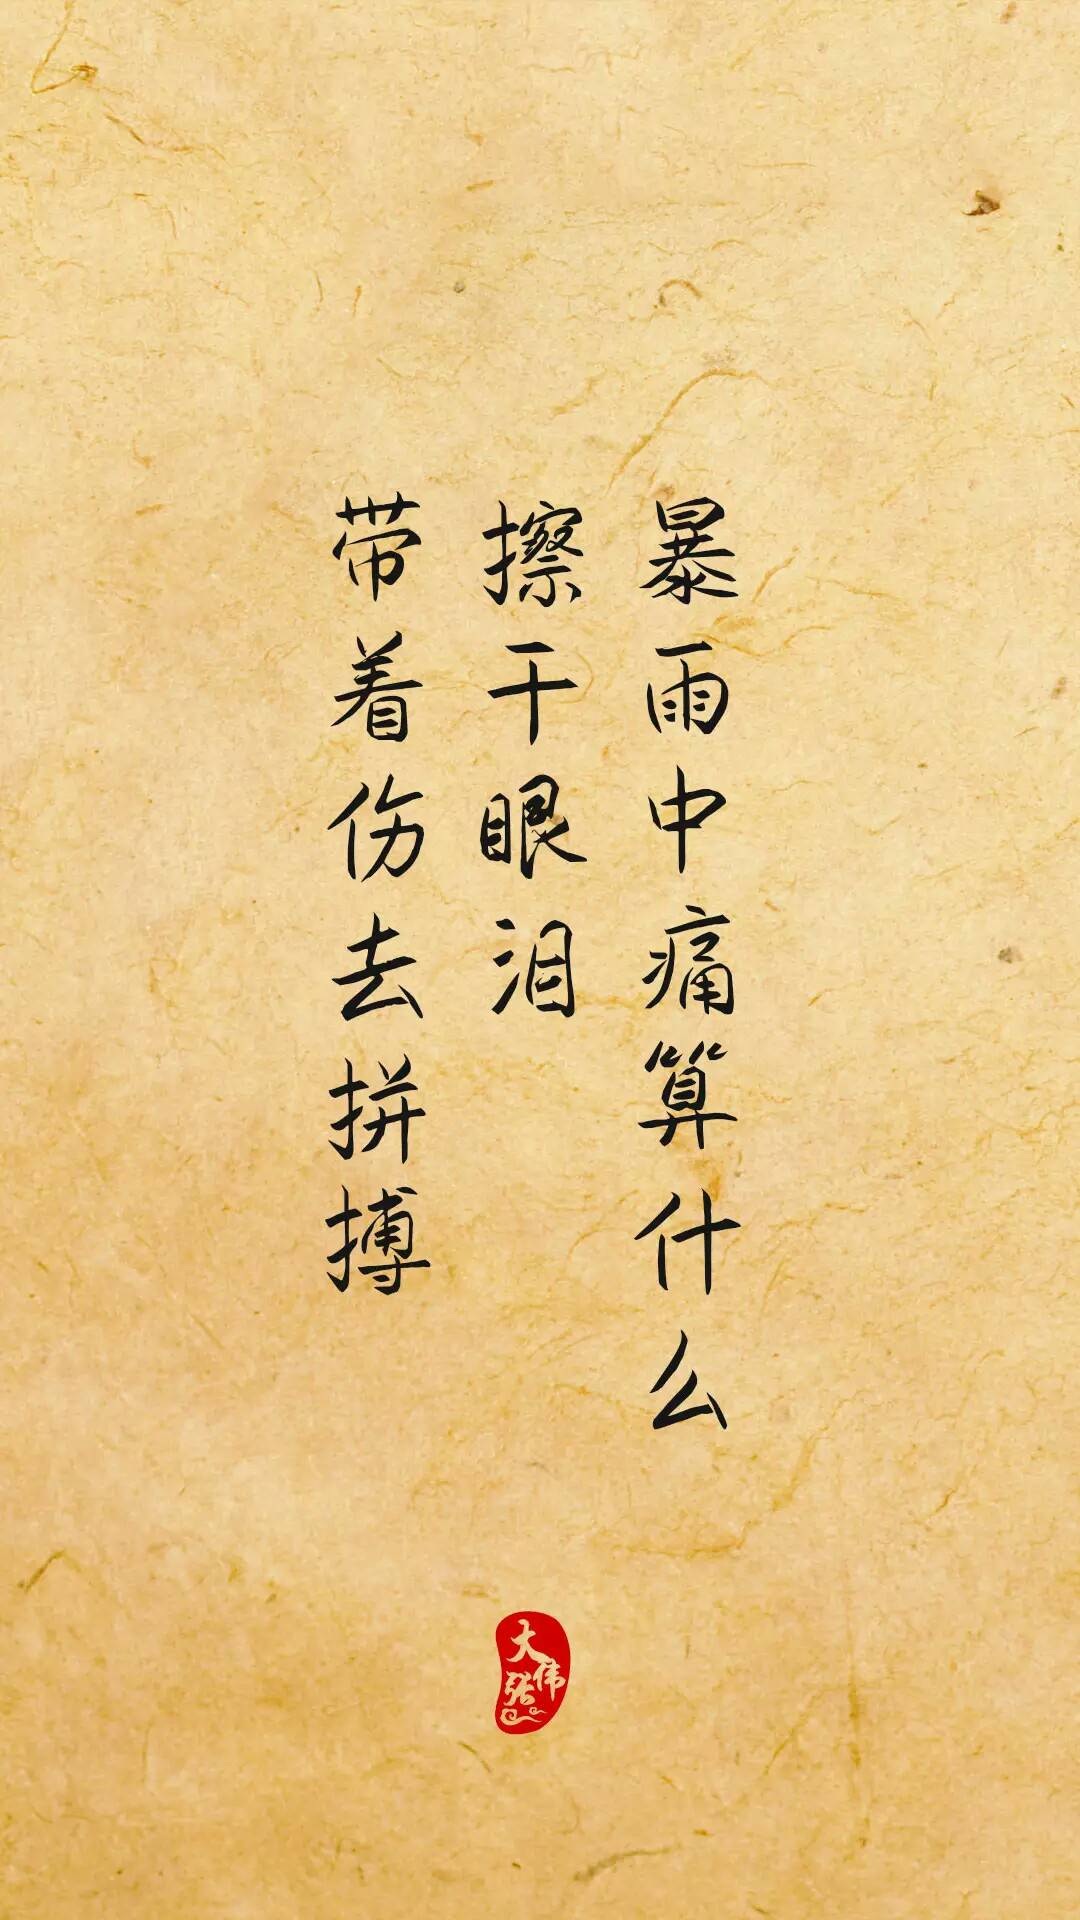 暴雨中痛算什么
擦干眼泪
带着伤去拼搏
大张伟